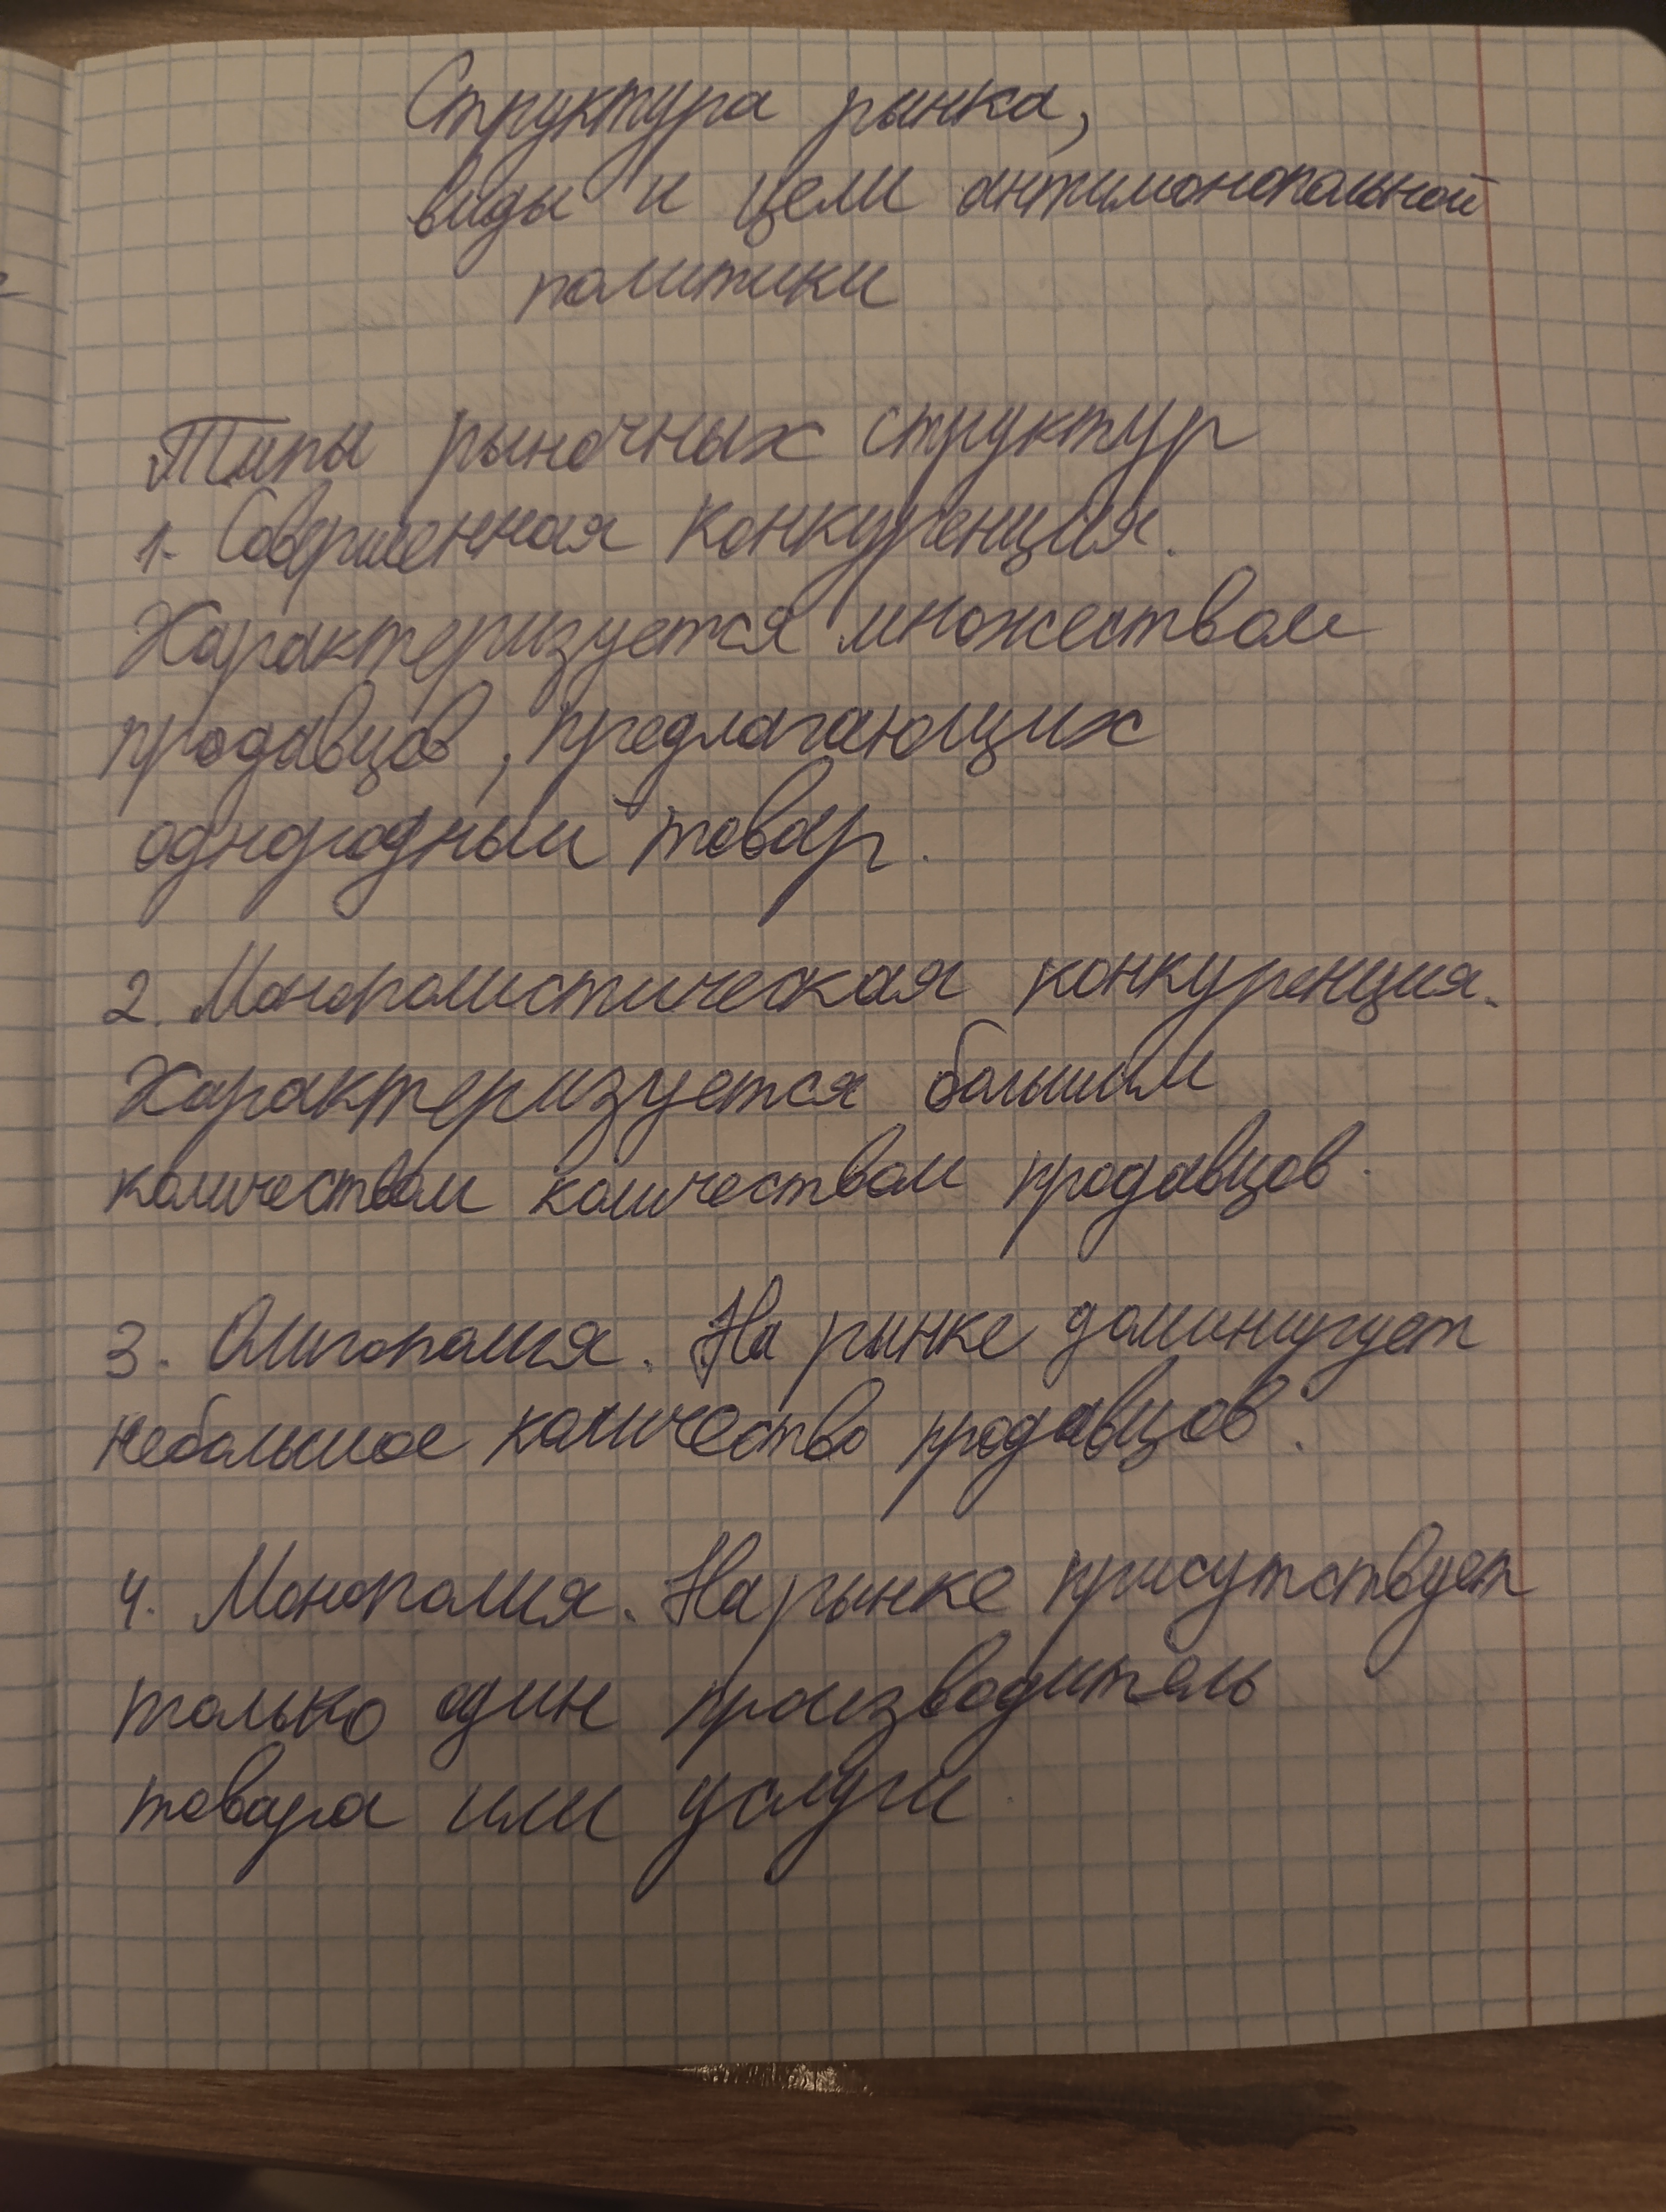 Структура рынка,
виды и цели антимонопольной
политики
Типы рыночных структур
1. Совершенная конкуренция.
Характеризуется множеством
продавцов, предлагающих
однородный товар.
2. Монополистическая конкуренция.
Характеризуется большим
количеством количеством продавцов.
3. Олигополия. На рынке доминирует
небольшое количество продавцов.
4. Монополия. На рынке присутствует
только один производитель
товара или услуги